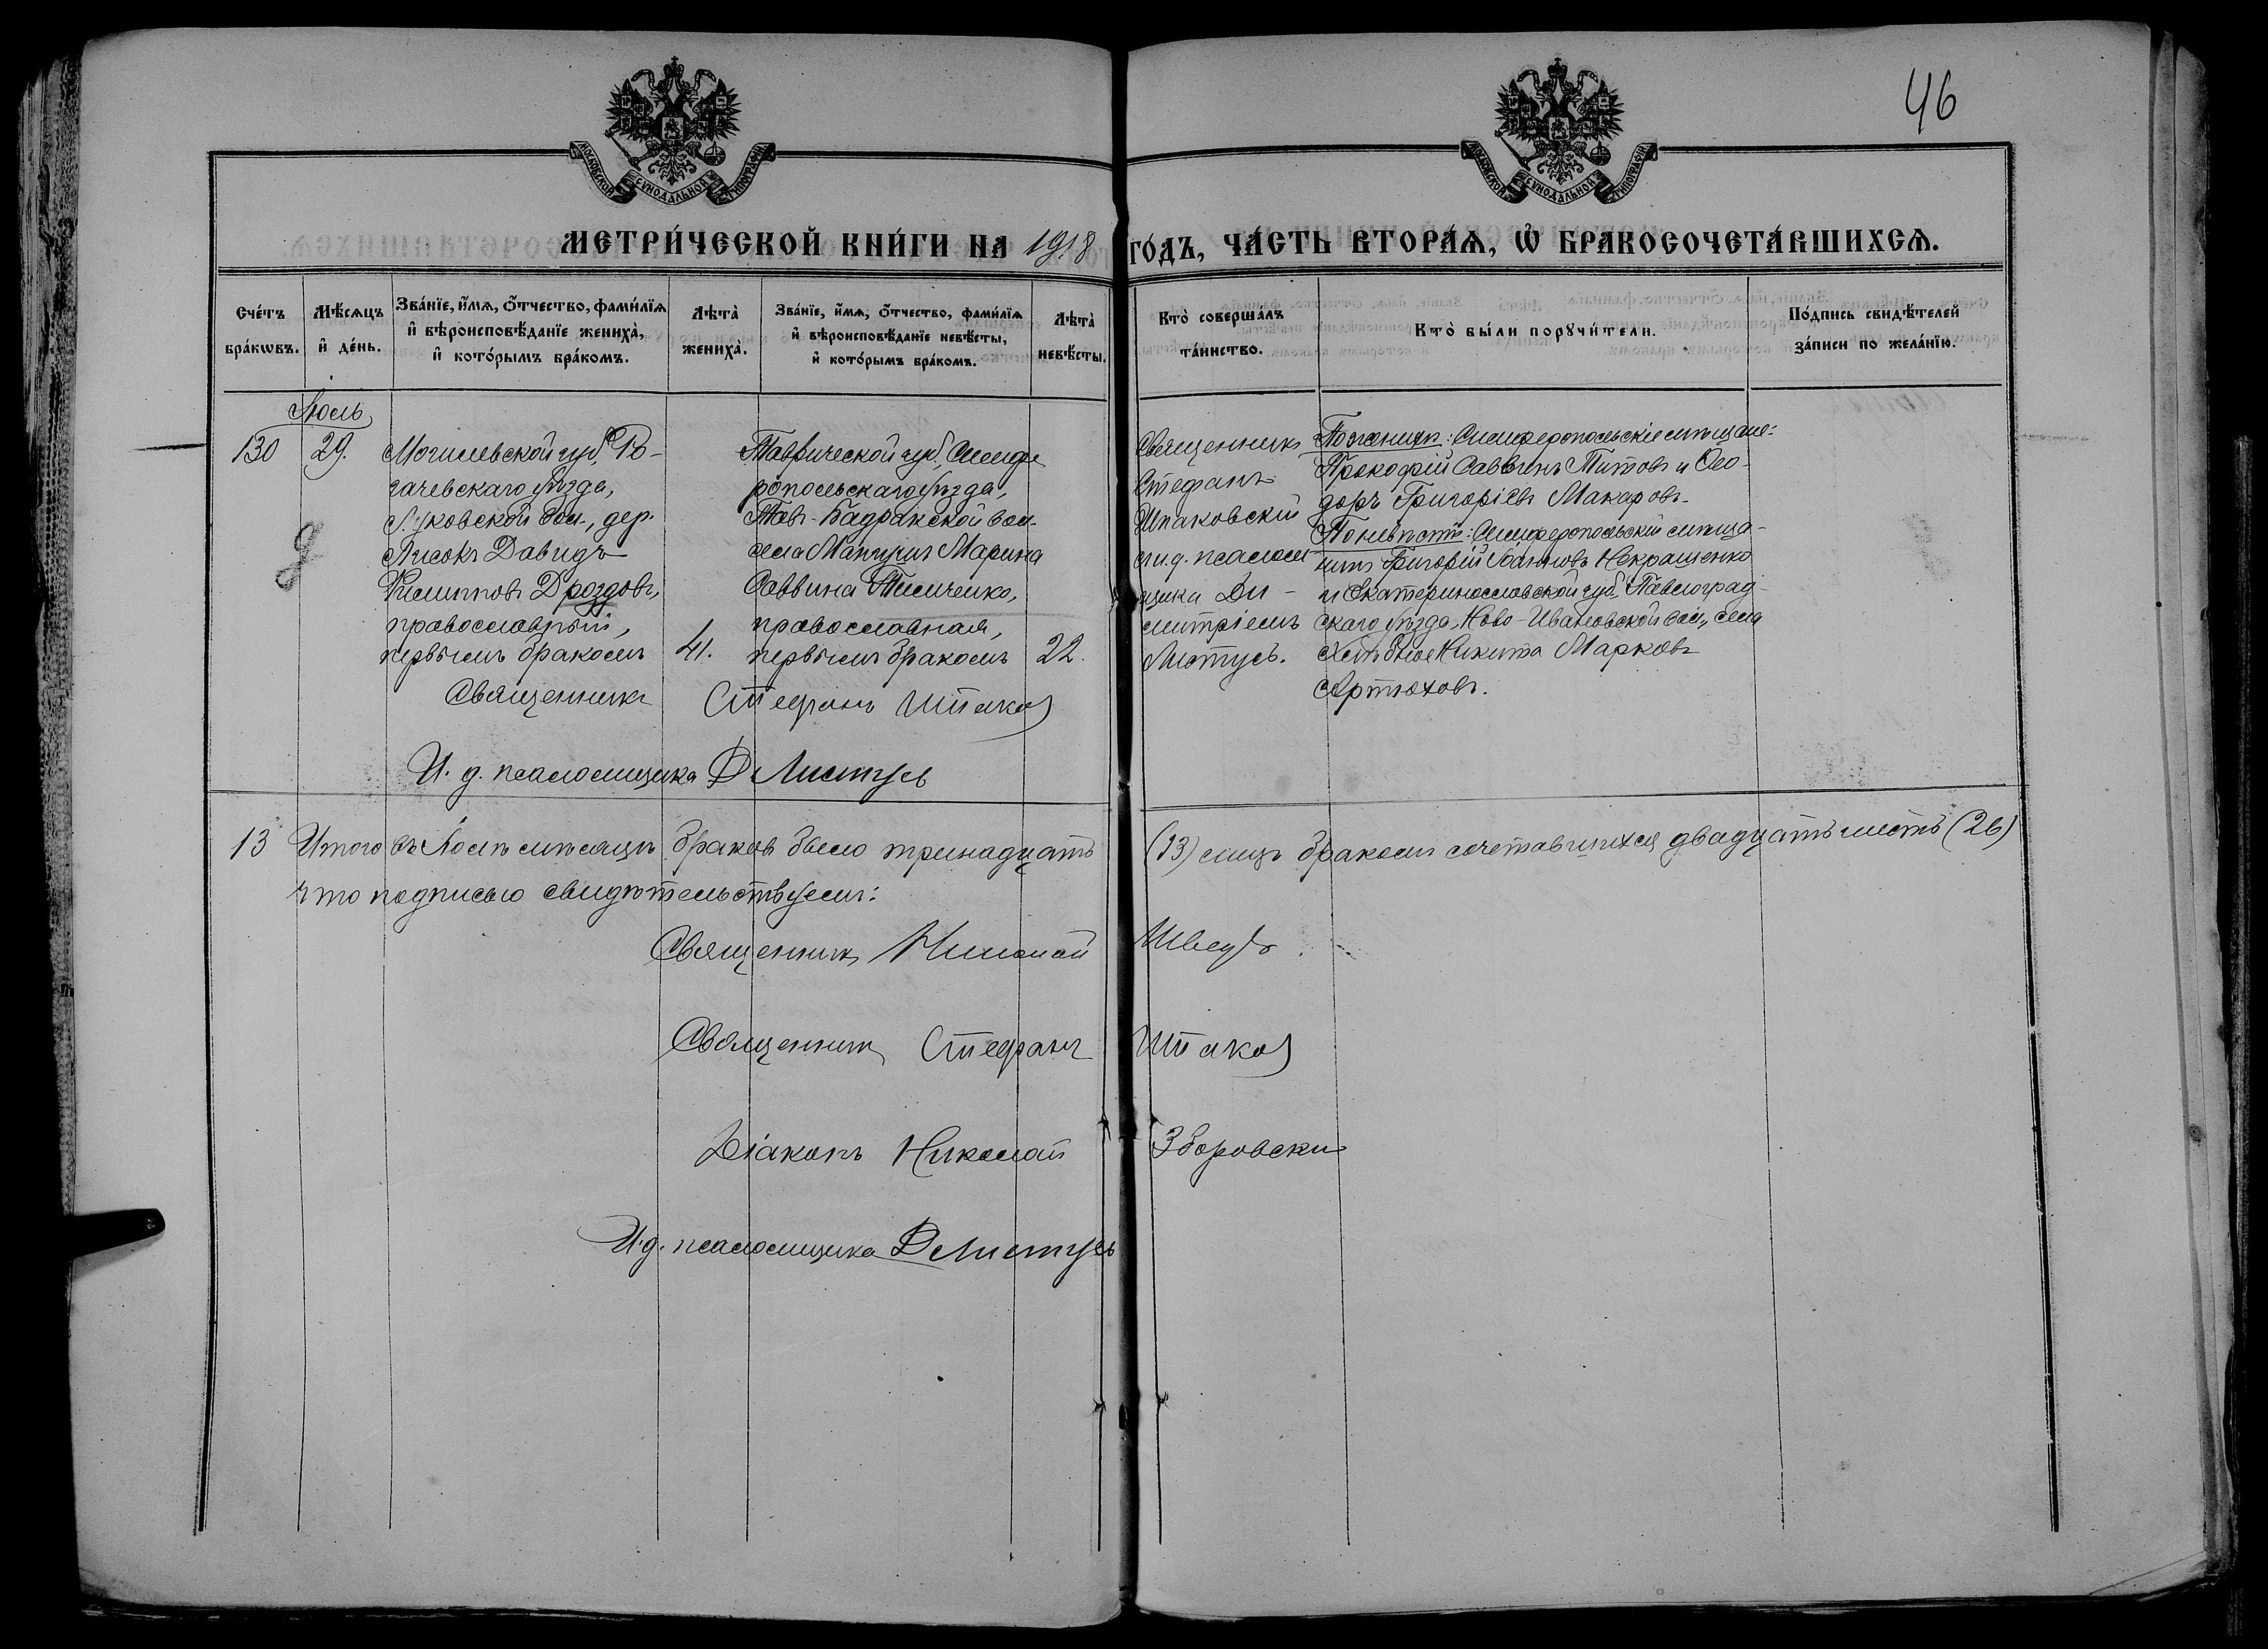 46
МОСКОВСКОЙ СѴНОДАЛЬНОЙ ТИПОГРАФІИ
МОСКОВСКОЙ СѴНОДАЛЬНОЙ ТИПОГРАФІИ
МЕТРИ́ЧЕСКОЙ КНИ́ГИ НА 1918 ГО́ДЪ, ЧА́СТЬ ВТОРА́Ѧ, Ѡ҆ БРАКОСОЧЕТА́ВШИХСѦ.
Сче́тъ бра́кѡвъ.
Мѣ́сѧцъ и҆ де́нь.
Зва́нїе, и҆́мѧ, ѻ҆́тчество, фами́лїѧ и҆ вѣроисповѣ́данїе жениха̀, и҆ кото́рымъ бра́комъ.
Лѣ́та̀ жениха̀.
Зва́нїе, и҆́мѧ, ѻ҆́тчество, фами́лїѧ и҆ вѣроисповѣ́данїе невѣ́сты, и҆ кото́рымъ бра́комъ.
Лѣ́та̀ невѣ́сты.
Кто̀ соверша́лъ та́инство.
Кто̀ бы́ли порꙋчи́тели.
По́дпись свидѣ́телей за́писи по жела́нїю.
Іюль
130
29.
Могилевской губ., Ро-
гачевскаго уѣзда,
Луковской вол., дер.
Лисокъ Давидъ
Филипповъ Дроздовъ,
православный,
первымъ бракомъ
41.
Таврической губ., Симфе
ропольскаго уѣзда,
Тав-Бадракской вол.
села Мангушъ Марина
Саввина
православная,
первымъ бракомъ
22.
Священникъ
Стефанъ
Шпаковскій
и и.д. псалом-
щика Ди-
митріемъ
Листусъ.
По женихѣ: Симферопольскіе мѣщане:
Прокофій Саввинъ Титовъ и Ѳео-
доръ Григоріевъ Макаровъ.
По невѣстѣ: Симферопольскій мѣща-
нинъ Григорій Іоанновъ Некращенко
и Екатеринославской губ., Павлоград-
скаго уѣзда, Ново-Ивановской вол., села
Никита Марковъ
Артюховъ.
Священникъ Стефанъ Шпаков
И. д. псаломщика Д Листусъ
13 Итого въ Іюлѣ мѣсяцѣ браковъ было тринадцать (13) лицъ бракомъ сочетавшихся двадцать шесть (26)
что подписью свидѣтельствуемъ:
Священникъ Николай Швецъ
Священникъ Стефанъ Шпаков
Діаконъ Николай Зборовскій
И.д. псаломщика Д Листусъ